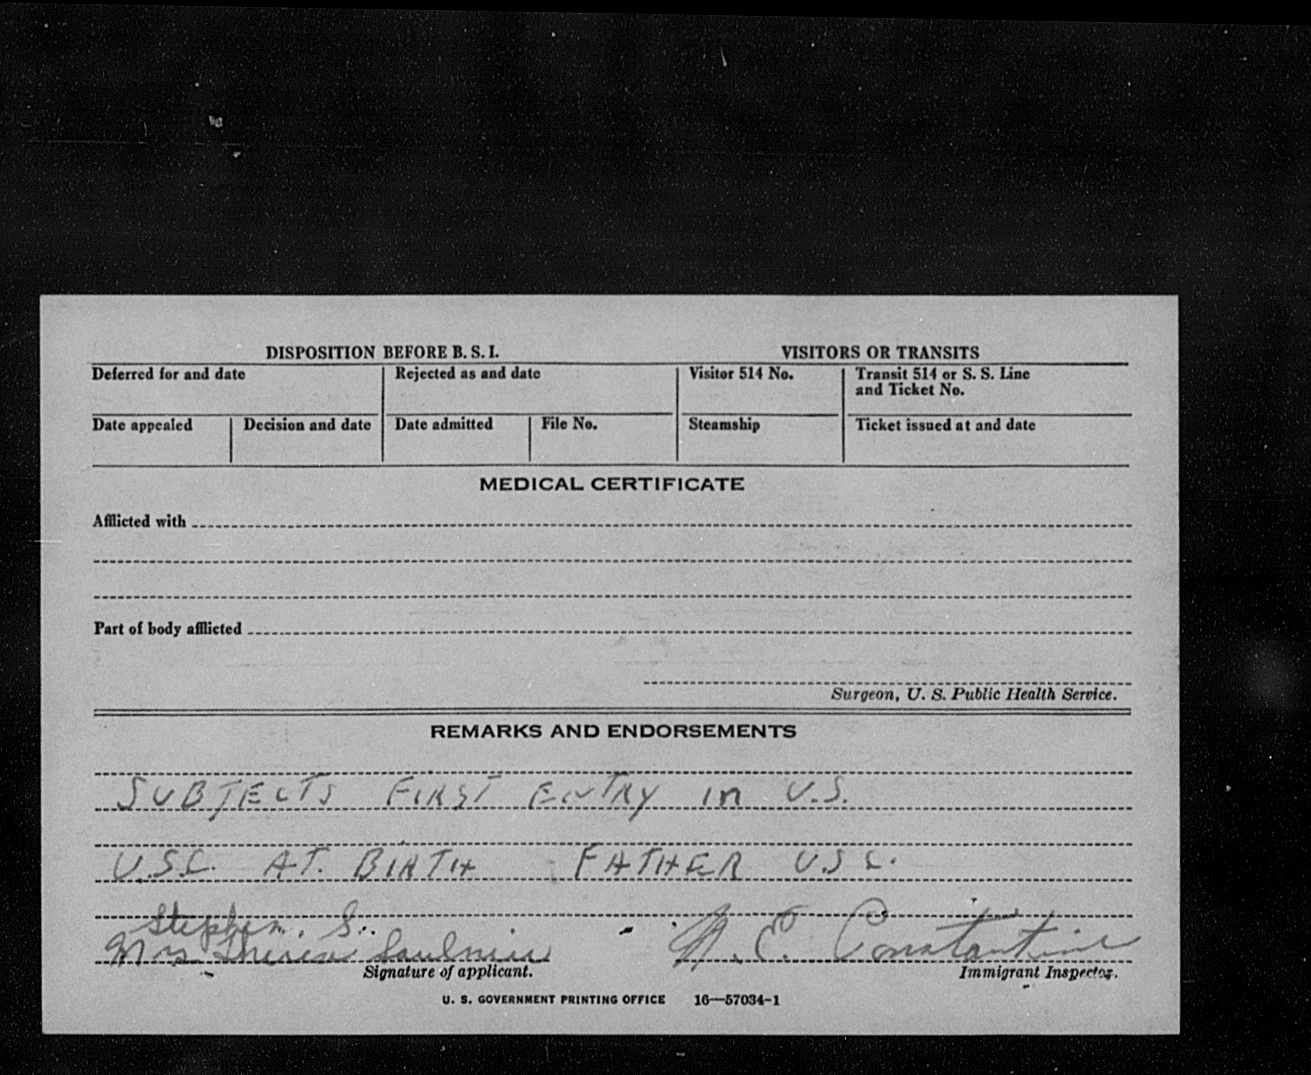 DISPOSITION BEFORE B. S. I. VISITORS OR TRANSITS
Deferred for and date Rejected as and date Visitor 514 No. Transit 514 or S. S. Line
and Ticket No.
Date appealed Decision and date Date admitted File No. Steamship Ticket issued at and date
MEDICAL CERTIFICATE
Afflicted with
Part of body afflicted
Surgeon, U. S. Public Health Service.
REMARKS AND ENDORSEMENTS
SUBJECTS FIRST ENTRY in U.S.
U.S.C. AT. BIRTH FATHER U S C.
Stephen. S.
Mrs Theresa Saulnier N. E. Constantine
Signature of applicant. Immigrant Inspector.
U. S. GOVERNMENT PRINTING OFFICE 16—57034-1